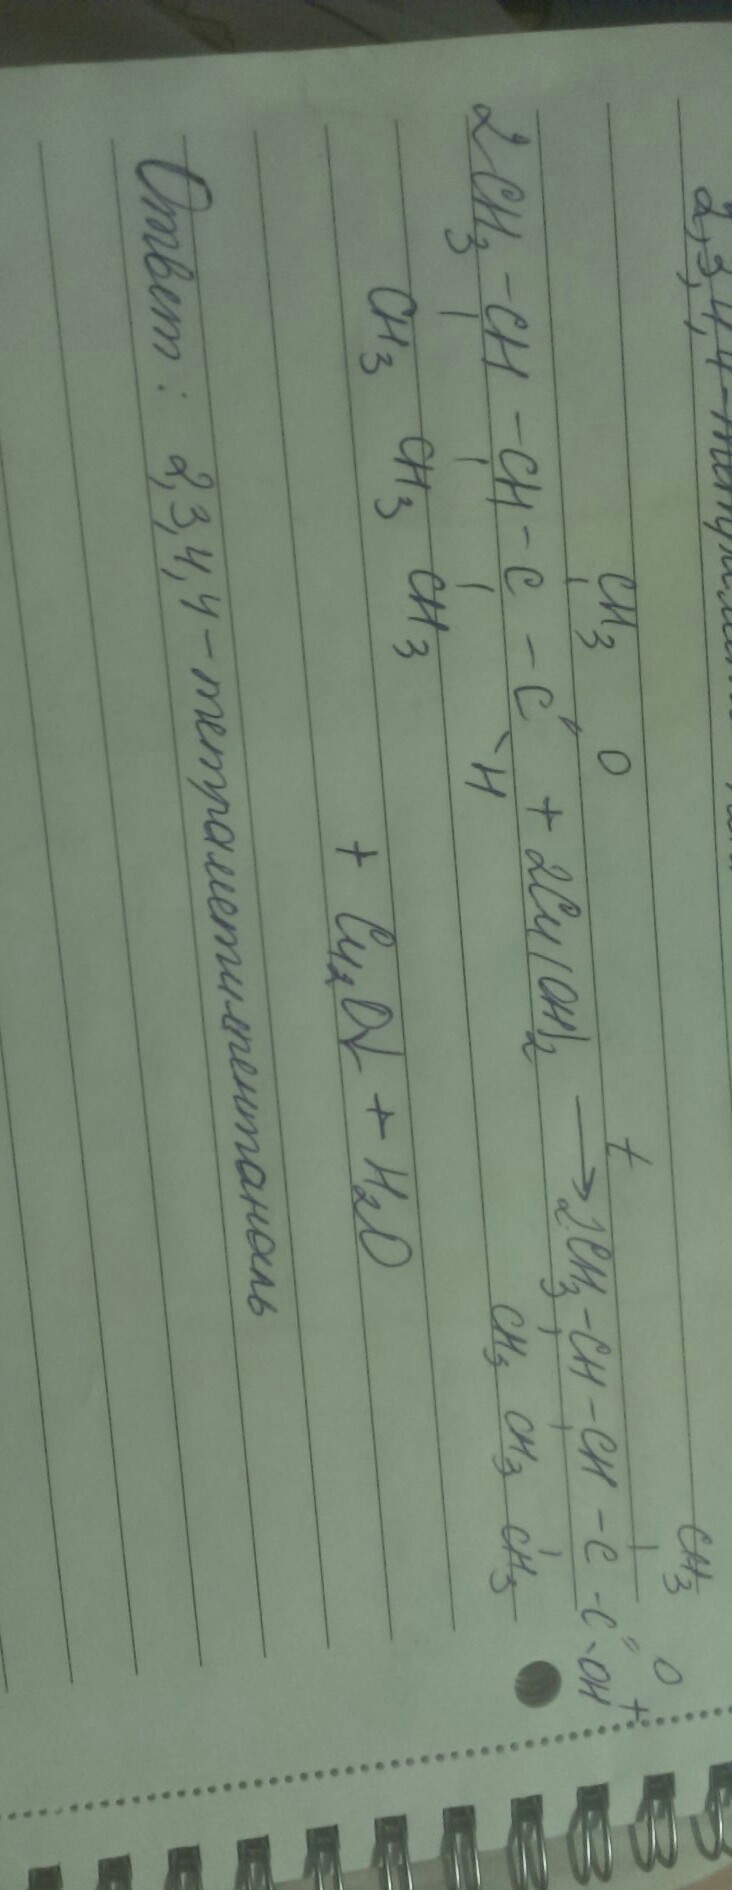 2,3,4,4-тетраметил
CH3 O t CH3 O
2CH3-CH-CH-C-C + 2Cu(OH)2 → 2CH3-CH-CH-C-C-OH +
H
CH3 CH3 CH3 CH3 CH3 CH3
+ Cu2O↓ + H2O
Ответ: 2,3,4,4-тетраметилпентаналь